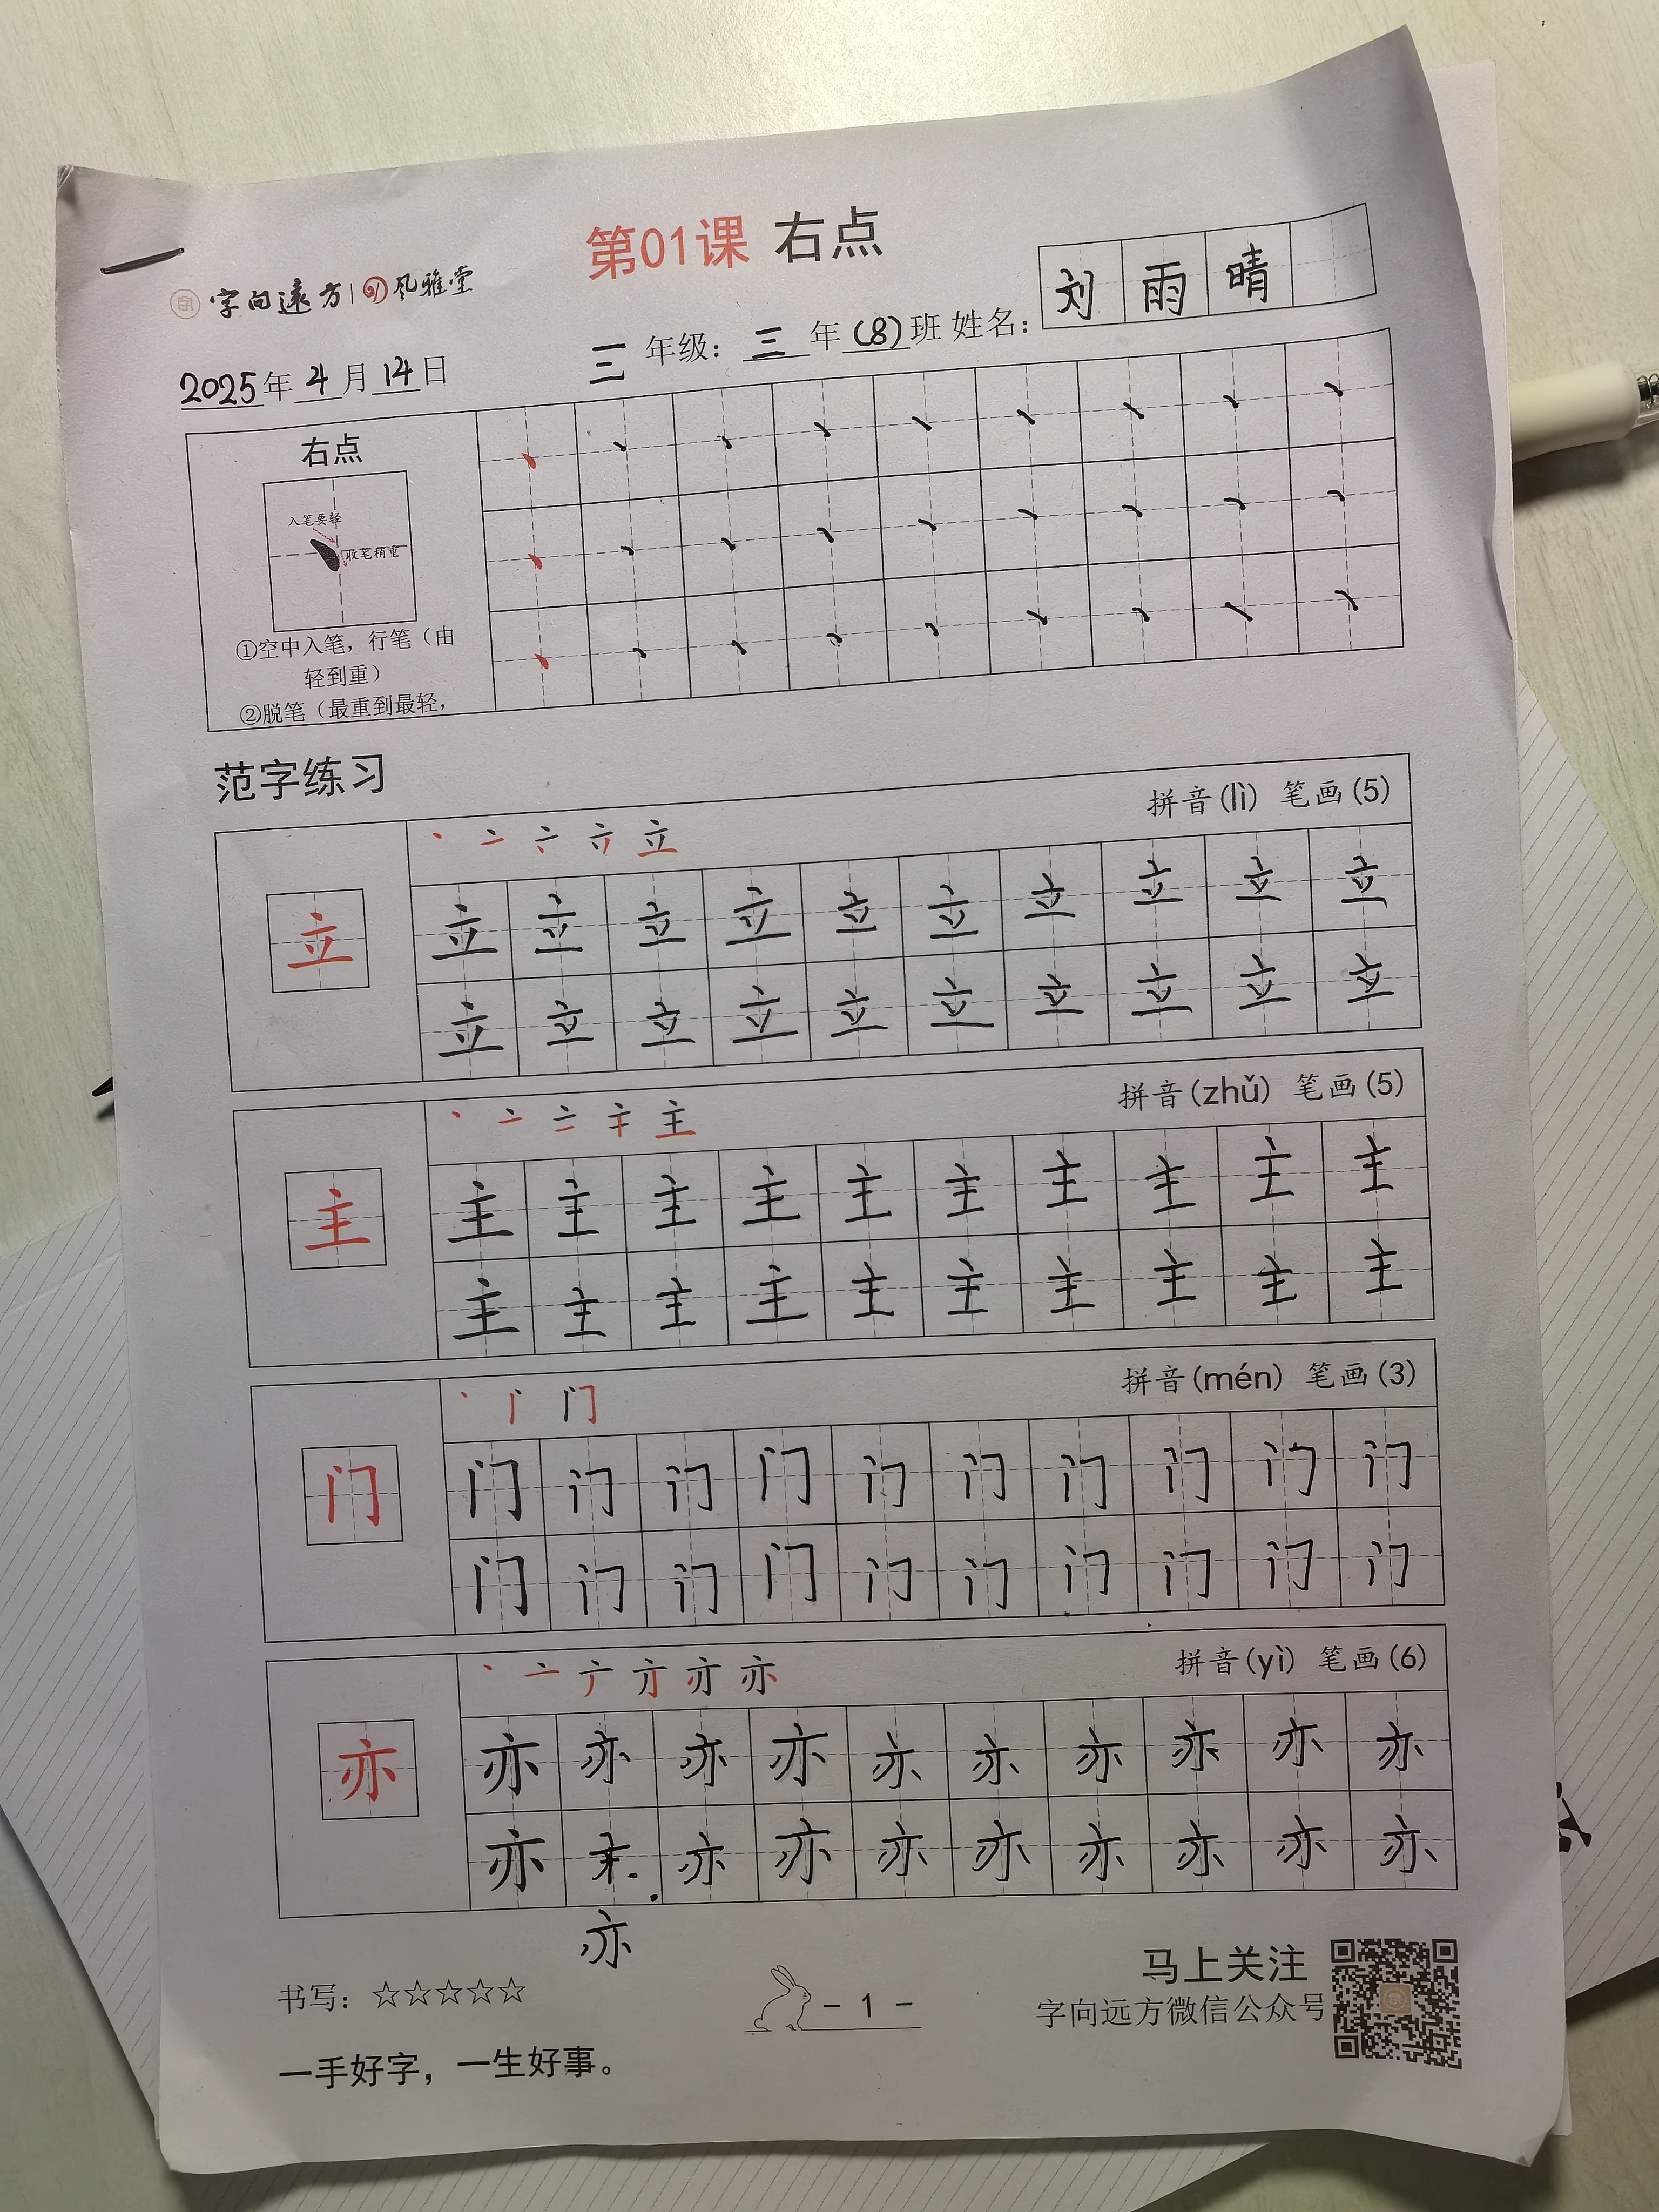 第01课 右点
字向远方 风雅堂
刘雨晴
2025年4月14日 三 年级：三年(8)班 姓名：
右点
入笔要轻
收笔稍重
①空中入笔，行笔（由
轻到重）
②脱笔（最重到最轻，
丶丶丶丶丶丶丶丶丶
丶丶丶丶丶丶丶丶丶
丶丶丶丶丶丶丶丶丶
范字练习
拼音(lì) 笔画(5)
立
立立立立立立立立立立
立立立立立立立立立立
拼音(zhǔ) 笔画(5)
主
主主主主主主主主主主
主主主主主主主主主主
拼音(mén) 笔画(3)
门
门门门门门门门门门门
门门门门门门门门门门
拼音(yì) 笔画(6)
亦
亦亦亦亦亦亦亦亦亦亦
亦 亦亦亦亦亦亦亦亦
亦
书写：☆☆☆☆☆
- 1 -
马上关注
字向远方微信公众号
一手好字，一生好事。